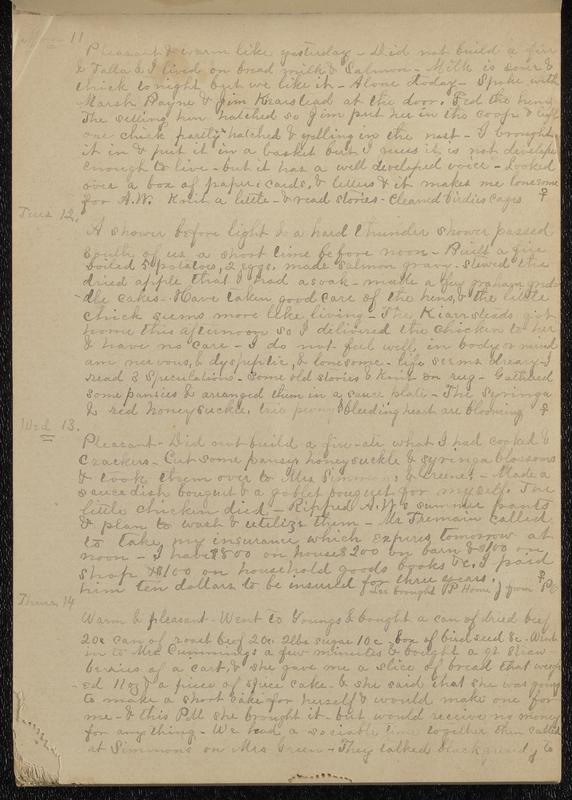 11
Pleasant & warm like yesterday - Did not build a fire
& Talla & I lived on bread milk & Salmon - Milk is sour &
thick tonight but we like it - Alone today - Spoke with
Marsh Payne & Jim Kearstead at the door. Fed the hens
The setting hen hatched so Jim put her in the coop & left
one chick partly hatched & yelling in the nest - I brought
it in & put it in a basket but I guess it is not develope
enough to live - but it has a well developed voice - Looked
over a box of papers cards, & letters & it makes me lonesome
for A.W. Knit a little - & read stories - cleaned birdies cages
Tues 12.
A shower before light & a hard thunder shower passed
South of us a short time before noon - Built a fire
boiled 5 potatoes, 2 eggs, made Salmon gravy - stewed the
dried apple that I had asoak - made a few graham grid-
dle cakes - Have taken good care of the hens, & the little
chick seems more like living - The Kiarsteads got
home this afternoon so I delivered the chicken to her
& have no care - I do not feel well, in body or mind
am nervous, & dyspeptic, & lonesome - life seems dreary - I
read 3 Speculations - some old stories & knit on rug - Gathered
some pansies & arranged them in a sauce plate - The Syringa
& red honeysuckle, peony & bleeding heart are blooming
Wed 13.
Pleasant - Did not build a fire - ate what I had cooked &
Crackers - Cut some pansies honeysuckle & syringa blossoms
& took them over to Mrs Simmons, & Greene - Made a
saucedish bouquet & a goblet bouquet for myself. The
little chicken died - Ripped A.W.'s summer pants
& plan to wash & utilize them - Mr Tremain called
to take my insurance which expires tomorrow at
noon - I have $800 on house $200 on barn & $100 on
shop & $100 on household goods books &c. I paid
him ten dollars to be insured for three years.
brought P Home J from P.O.
Thurs. 14
Warm & pleasant - Went to Youngs & bought a can of dried beef
20c can of roast beef 20c. 2lbs sugar 10c - box of bird seed 8c. Went
in to Mrs Cummings a few minutes & bought a qt straw-
berries of a cart, & she gave me a slice of bread that weigh-
ed 11oz & a piece of spice cake - & she said that she was going
to make a short cake for herself & would make one for
me - & this P.M she brought it - but would receive no money
for anything - We had a sociable time together then called
at Simmons on Mrs Green - They talked